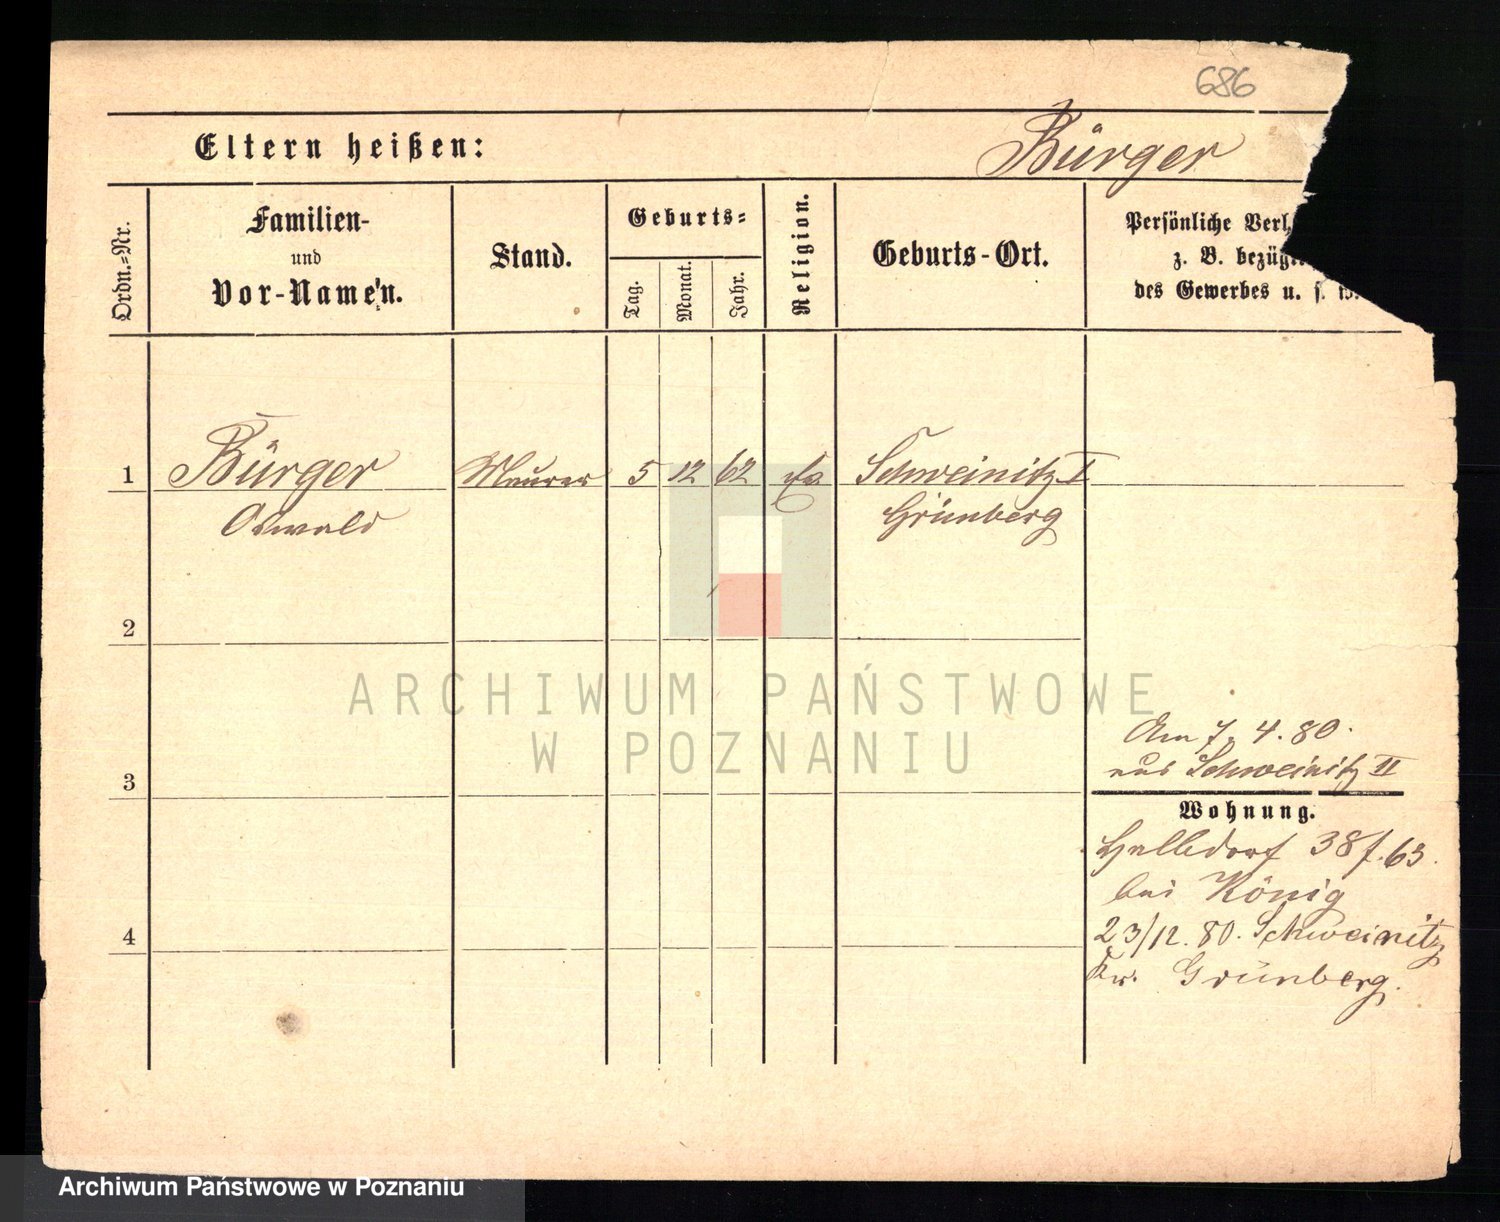 686
Eltern heißen: Bürger
Ordn.-Nr.
Familien-
und
Vor-Namen.
Stand.
Geburts-
Tag.
Monat.
Jahr.
Religion.
Geburts-Ort.
Persönliche Verh
z. B. bezügl
des Gewerbes u. s. w.
1 Bürger Maurer 5 12 62 Ev Schweinitz I
Oswald Grünberg
2
3
Am 7. 4. 80.
aus Schweinitz II
Wohnung.
Halbdorf 38 f. 63.
bei König
4
23/12. 80. Schweinitz
Kr. Grünberg.
ARCHIWUM PAŃSTWOWE
W POZNANIU
Archiwum Państwowe w Poznaniu